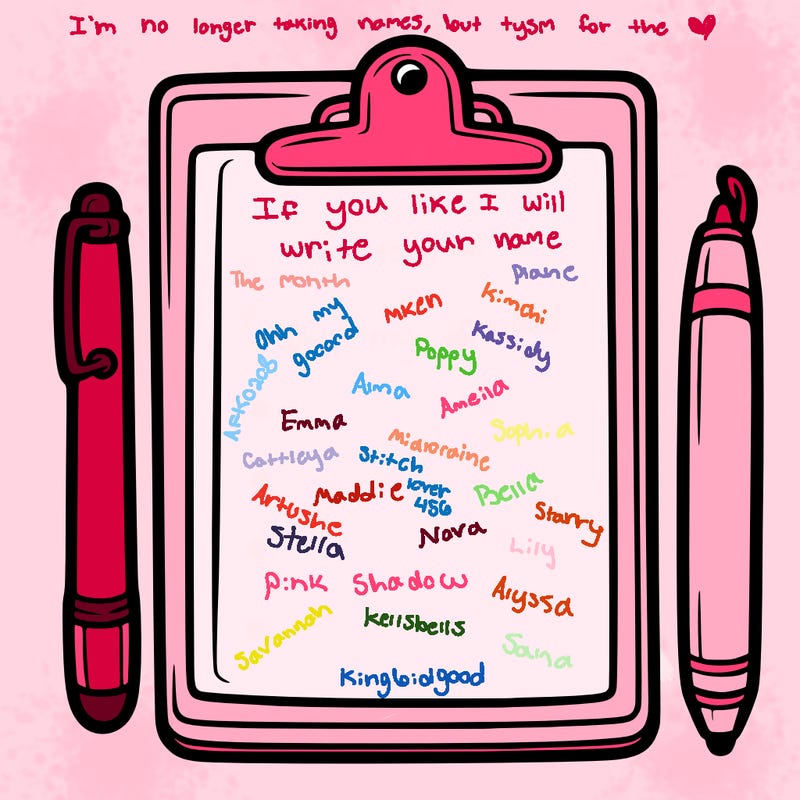 I'm no longer taking names, but tysm for the
If you like I will
write your name
The month
Diane
Ohh my
gocord
Mken
Kimchi
Kassidy
Poppy
AFK0208
Alma
Ameila
Emma
Sophia
Cattleya
Stitch
lover
456
Midioraine
Maddie
Bella
Artushe
Starry
Stella
Nova
Lily
Pink Shadow
Alyssa
Savannah
Kellsbells
Sana
Kingbidgood